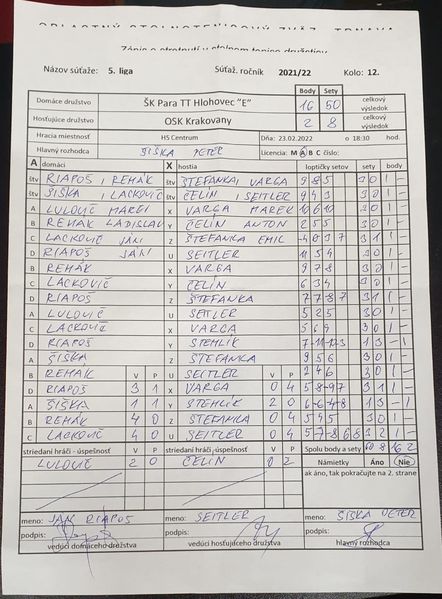 OBLASTNÝ STOLNOTENISOVÝ ZVÄZ TRNAVA
Zápis o stretnutí v stolnom tenise družstiev
Názov súťaže: 5. liga Súťaž. ročník 2021/22 Kolo: 12.
Body Sety
Domáce družstvo ŠK Para TT Hlohovec "E" 16 50 celkový výsledok
Hosťujúce družstvo OSK Krakovany 2 8 celkový výsledok
Hracia miestnosť HS Centrum Dňa: 23.02.2022 o 18:30 hod.
Hlavný rozhodca ŠIŠKA PETER Licencia: M A B C číslo:
A domáci X hostia loptičky setov sety body
štv RIAPOŠ, REHÁK štv ŠTEFANKA, VARGA 9 8 5 3 0 1 -
štv ŠIŠKA, LACKOVIČ štv ČELÍN, SEITLER 9 4 3 3 0 1 -
A LULOVIČ MARGI X VARGA MAREK 10 6 10 3 0 1 -
B REHÁK LADISLAV Y ČELÍN ANTON 2 5 5 3 0 1 -
C LACKOVIČ JÁN Z ŠTEFANKA EMIL -4 8 3 7 3 1 1 -
D RIAPOŠ JÁN U SEITLER 11 5 4 3 0 1 -
B REHÁK X VARGA 9 7 8 3 0 1 -
C LACKOVIČ Y ČELÍN 6 3 4 3 0 1 -
D RIAPOŠ Z ŠTEFANKA 7 7 -8 7 3 1 1 -
A LULOVIČ U SEITLER 5 2 5 3 0 1 -
C LACKOVIČ X VARGA 5 6 9 3 0 1 -
D RIAPOŠ Y STEHLÍK 1 3 - 1
A ŠIŠKA Z ŠTEFANKA 9 5 6 3 0 1 -
B REHÁK V P U SEITLER V P 2 4 6 3 0 1 -
D RIAPOŠ 3 1 X VARGA 0 4 5 8 -9 7 3 1 1 -
A ŠIŠKA 1 1 Y STEHLÍK 2 0 -6 6 -4 -8 1 3 - 1
B REHÁK 4 0 Z ŠTEFANKA 0 4 5 4 5 3 0 1 -
C LACKOVIČ 4 0 U SEITLER 0 4 5 7 -8 6 3 1 -
striedaní hráči - úspešnosť V P striedaní hráči - úspešnosť V P Spolu body a sety 50 8 16 2
LULOVIČ 2 0 ČELÍN 0 2 Námietky Áno Nie
ak áno, tak pokračujte na 2. strane
meno: JÁN RIAPOŠ meno: SEITLER meno: ŠIŠKA PETER
podpis: podpis: podpis:
vedúci domáceho družstva vedúci hosťujúceho družstva hlavný rozhodca